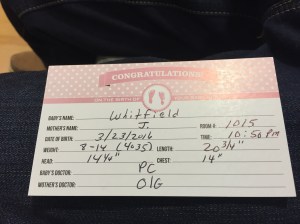 CONGRATULATIONS
ON THE BIRTH OF
BABY'S NAME: Whitfield
MOTHER'S NAME: J. ROOM # 1015
DATE OF BIRTH: 3/23/2016 TIME: 10:50 PM
WEIGHT: 8-14 (4035) LENGTH: 20 3/4"
HEAD: 14 1/4" CHEST: 14"
BABY'S DOCTOR: PC
MOTHER'S DOCTOR: OIG